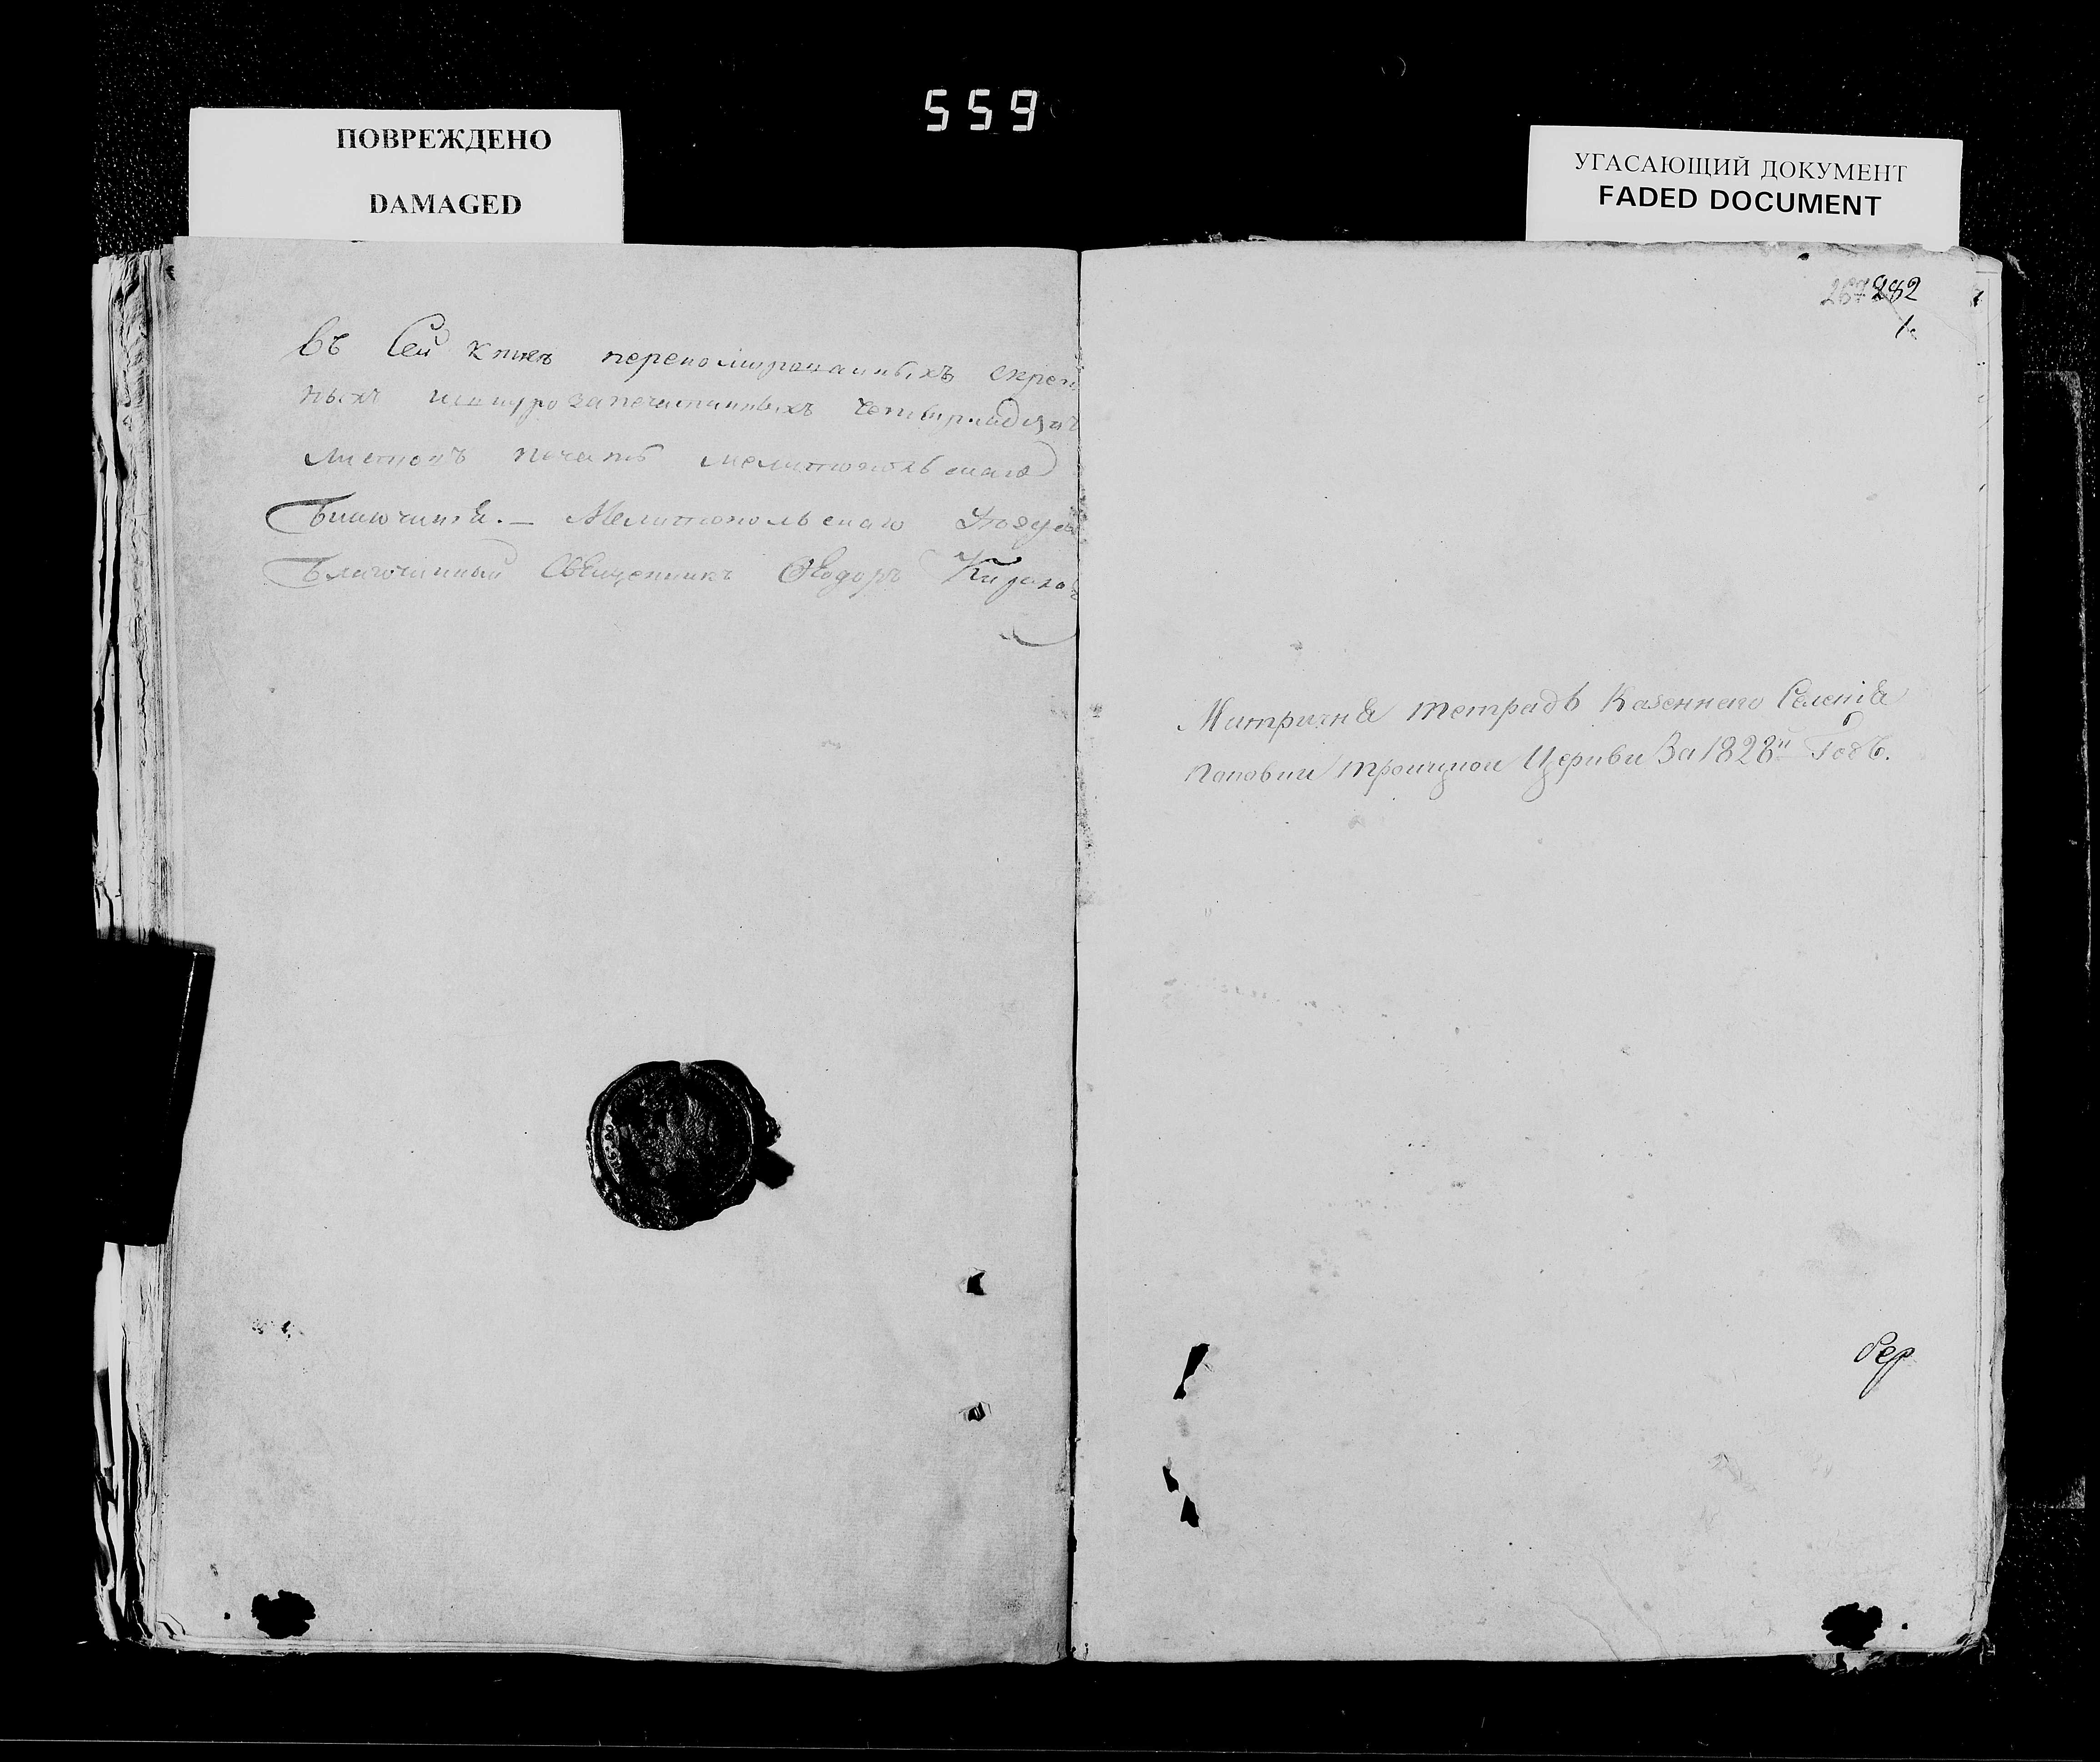 559
ПОВРЕЖДЕНО
DAMAGED
УГАСАЮЩИЙ ДОКУМЕНТ
FADED DOCUMENT
Въ Сей книгѣ перено скреп
ныхъ запечатанныхъ четырнадцать
Листовъ печать мелитопольскаго
Благочинія. — Мелитопольскаго Уезда
Благочинный Священникъ Ѳеодоръ
267 282
1.
Митрична тетрадь Казеннаго Селенія
Поповки троицкои Церкви За 1828й Годъ.